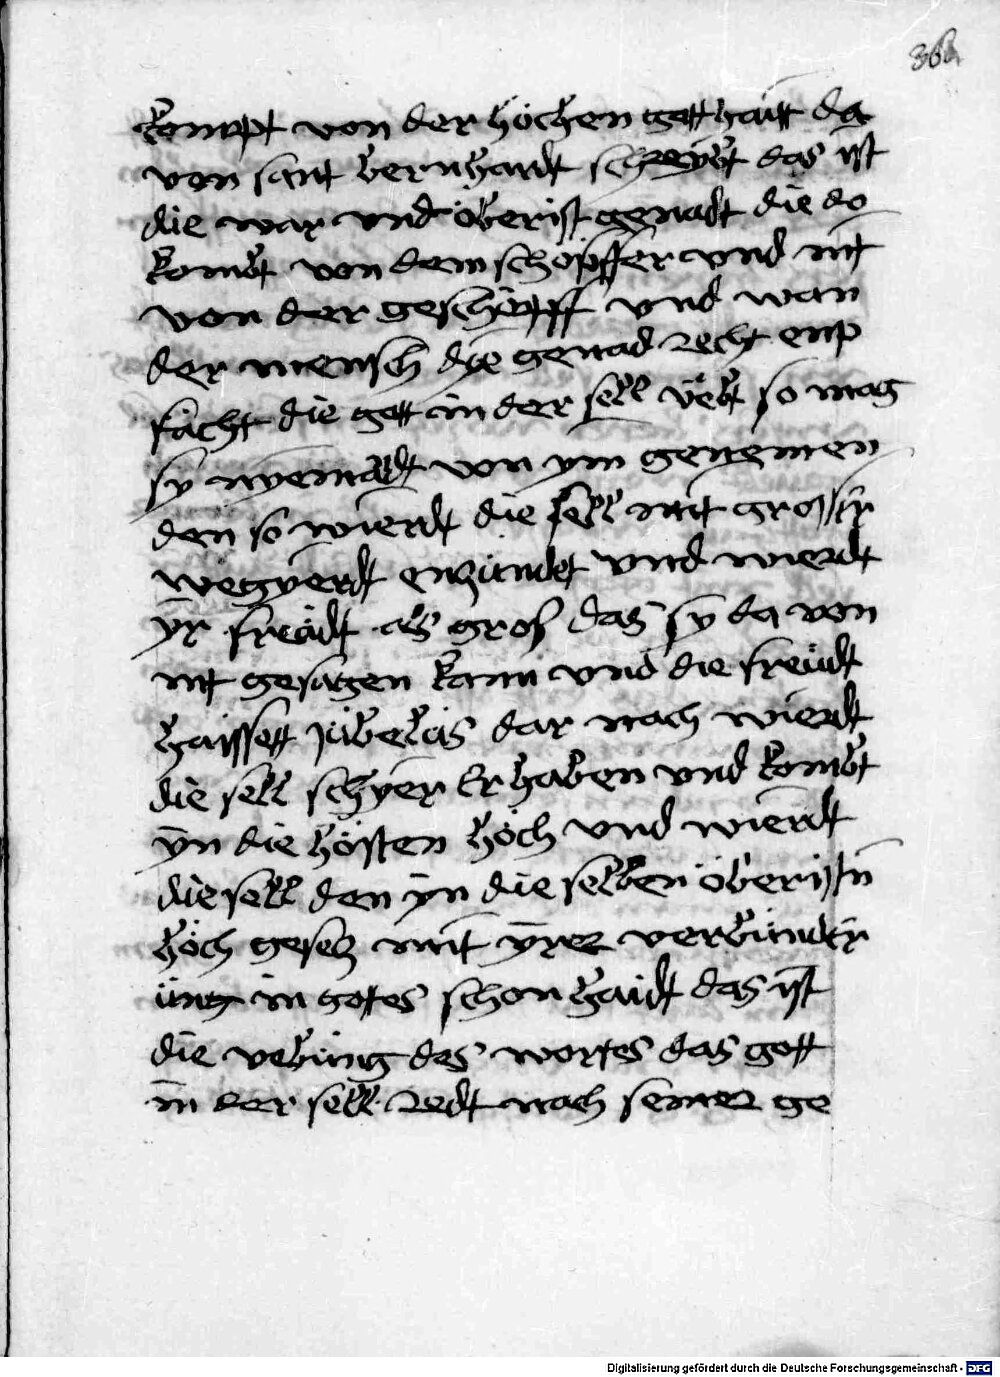 368
kompt von der höchen gotthait da
von sant bernhardt schreybt das ist
die war und öberist genadt die do
kombt von dem schöpffer und nit
von der geschöpff und wan
der mensch dye genad recht enp
fächt die gott in der sell uebt so mag
sy nyemandt von ym genemen
den so wierdt die sell mit grosser
wegyerdt enzündet und wierdt
yr freüdt als groß das sy da von
nit gesagen kann und die freüdt
haissett jubelus dar nach wierdt
die sell schyer Erhaben und kombt
yn die hösten höch und wierdt
die sell den yn die selben öberisten
höch gesetz mit yrer verbünder
üng in gotes schonhaidt das ist
die uebüng des wortes das gott
in der sell redt nach seiner ge
Digitalisierung gefördert durch die Deutsche Forschungsgemeinschaft - DFG